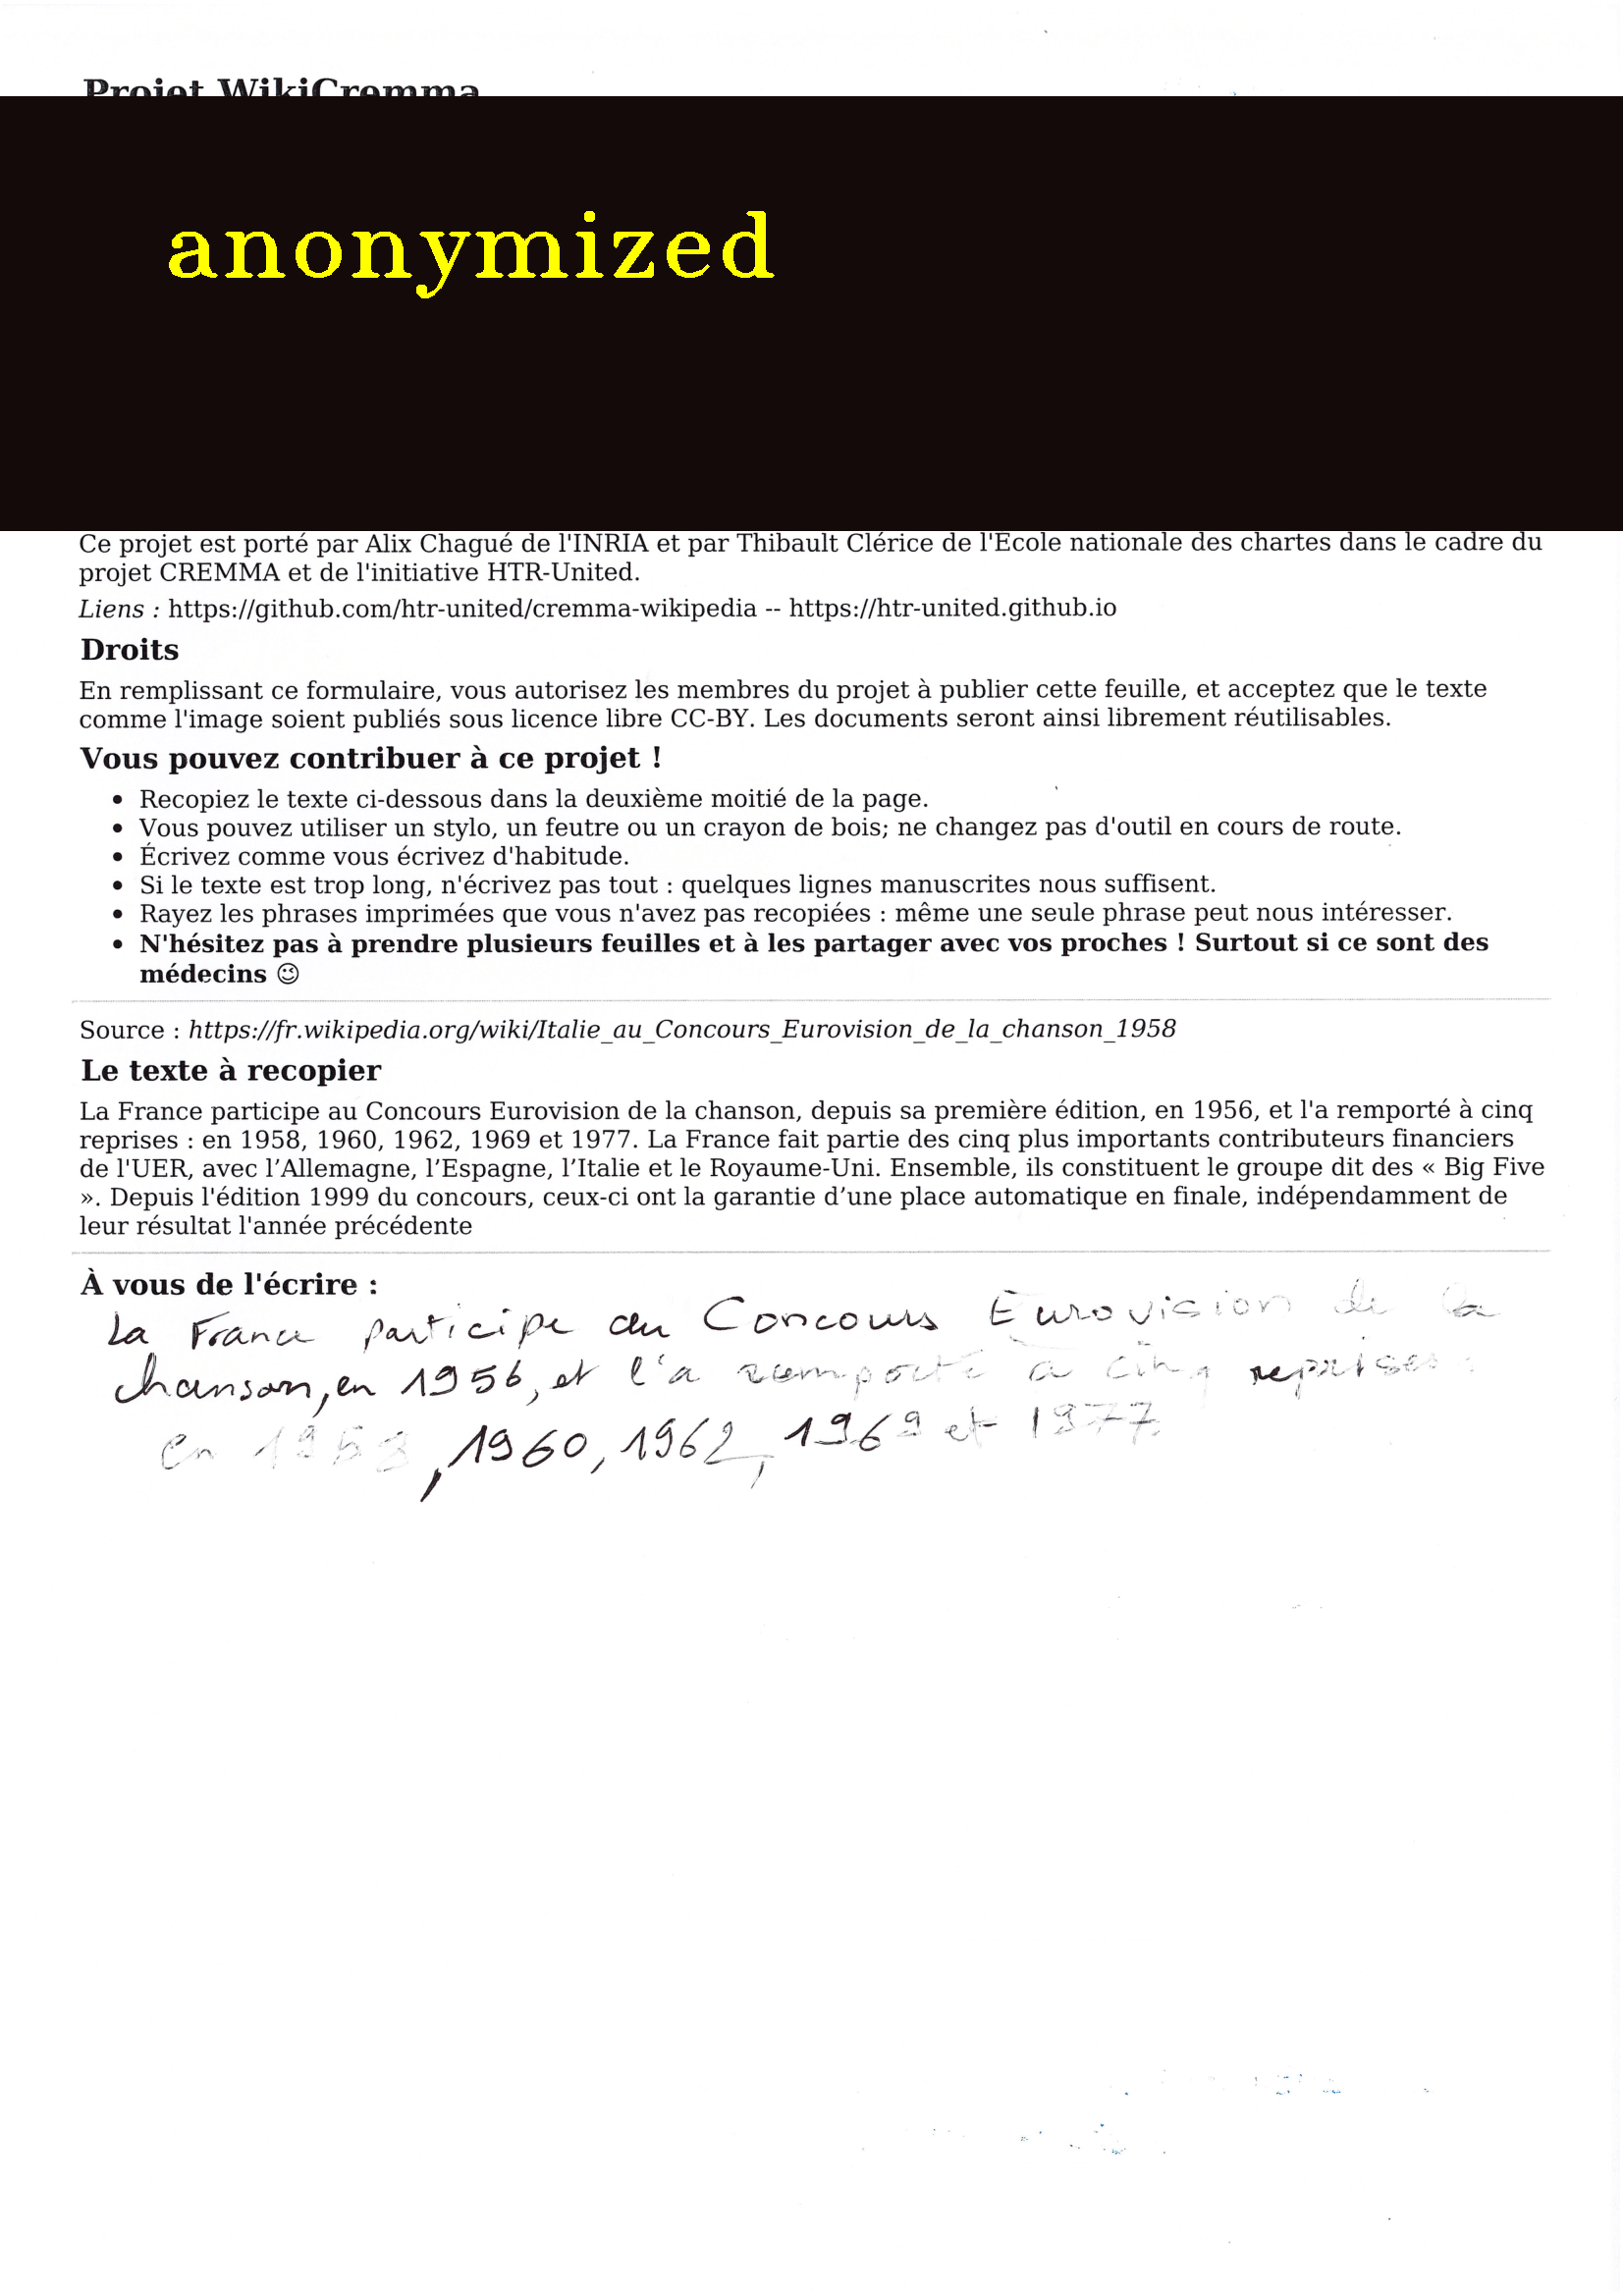 Projet WikiCremma
anonymized
Ce projet est porté par Alix Chagué de l'INRIA et par Thibault Clérice de l'École nationale des chartes dans le cadre du
projet CREMMA et de l'initiative HTR-United.
Liens : https://github.com/htr-united/cremma-wikipedia -- https://htr-united.github.io
Droits
En remplissant ce formulaire, vous autorisez les membres du projet à publier cette feuille, et acceptez que le texte
comme l'image soient publiés sous licence libre CC-BY. Les documents seront ainsi librement réutilisables.
Vous pouvez contribuer à ce projet !
• Recopiez le texte ci-dessous dans la deuxième moitié de la page.
• Vous pouvez utiliser un stylo, un feutre ou un crayon de bois; ne changez pas d'outil en cours de route.
• Écrivez comme vous écrivez d'habitude.
• Si le texte est trop long, n'écrivez pas tout : quelques lignes manuscrites nous suffisent.
• Rayez les phrases imprimées que vous n'avez pas recopiées : même une seule phrase peut nous intéresser.
• N'hésitez pas à prendre plusieurs feuilles et à les partager avec vos proches ! Surtout si ce sont des
médecins 😉
Source : https://fr.wikipedia.org/wiki/Italie_au_Concours_Eurovision_de_la_chanson_1958
Le texte à recopier
La France participe au Concours Eurovision de la chanson, depuis sa première édition, en 1956, et l'a remporté à cinq
reprises : en 1958, 1960, 1962, 1969 et 1977. La France fait partie des cinq plus importants contributeurs financiers
de l'UER, avec l’Allemagne, l’Espagne, l’Italie et le Royaume-Uni. Ensemble, ils constituent le groupe dit des « Big Five
». Depuis l'édition 1999 du concours, ceux-ci ont la garantie d’une place automatique en finale, indépendamment de
leur résultat l'année précédente
À vous de l'écrire :
La France participe au Concours Eurovision de la
chanson, en 1956, et l'a remporté à cinq reprises :
en 1958, 1960, 1962, 1969 et 1977.